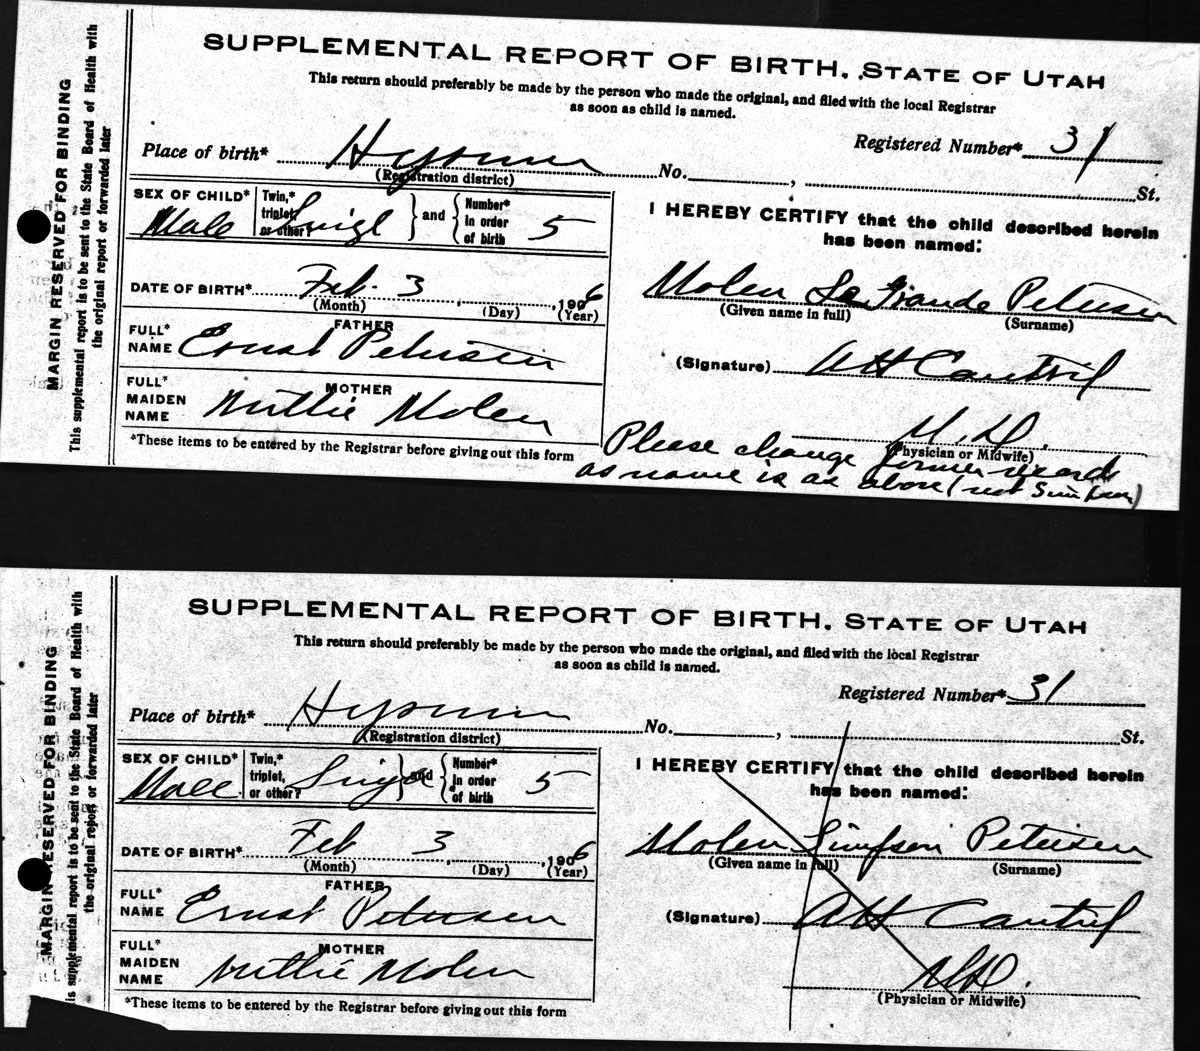 SUPPLEMENTAL REPORT OF BIRTH. STATE OF UTAH
This return should preferably be made by the person who made the original, and filed with the local Registrar
as soon as child is named.
Registered Number* 31
Place of birth* Hyrum No. , St.
(Registration district)
SEX OF CHILD* Male
Twin,* triplet, or other? Singl and Number* in order of birth 5
DATE OF BIRTH* Feb. 3 , 1906
(Month) (Day) (Year)
FATHER
FULL* NAME Ernst Petersen
MOTHER
FULL* MAIDEN NAME Nittie Molen
*These items to be entered by the Registrar before giving out this form
I HEREBY CERTIFY that the child described herein
has been named:
Molen Le Grande Petersen
(Given name in full) (Surname)
(Signature) AH Cantril
M.D.
(Physician or Midwife)
Please change former record
as name is as above (not Simpson)
MARGIN RESERVED FOR BINDING
This supplemental report is to be sent to the State Board of Health with
the original report or forwarded later
SUPPLEMENTAL REPORT OF BIRTH. STATE OF UTAH
This return should preferably be made by the person who made the original, and filed with the local Registrar
as soon as child is named.
Registered Number* 31
Place of birth* Hyrum No. , St.
(Registration district)
SEX OF CHILD* Male
Twin,* triplet, or other? Single and Number* in order of birth 5
DATE OF BIRTH* Feb 3 , 1906
(Month) (Day) (Year)
FATHER
FULL* NAME Ernst Petersen
MOTHER
FULL* MAIDEN NAME Nittie Molen
*These items to be entered by the Registrar before giving out this form
I HEREBY CERTIFY that the child described herein
has been named:
Molen Simpson Petersen
(Given name in full) (Surname)
(Signature) AH Cantril
M.D.
(Physician or Midwife)
MARGIN RESERVED FOR BINDING
is supplemental report is to be sent to the State Board of Health with
the original report or forwarded later